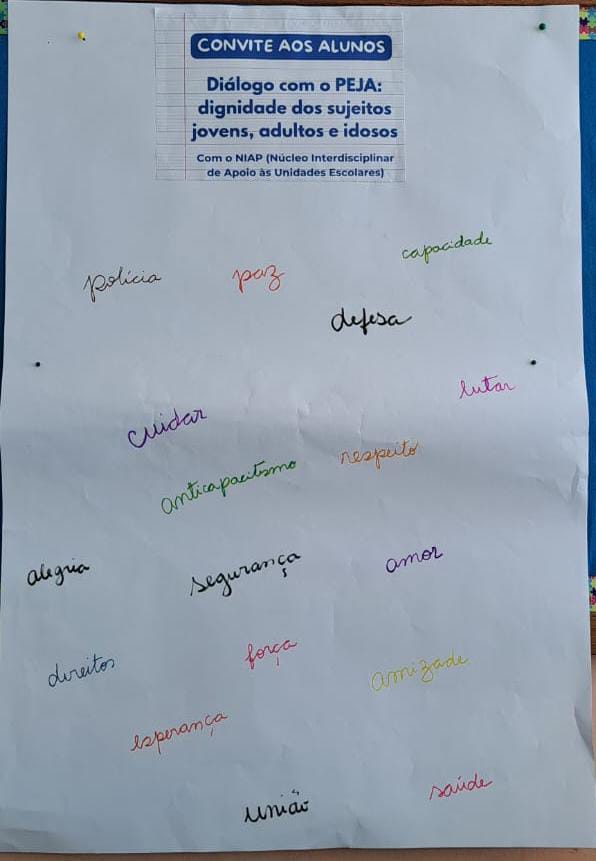 CONVITE AOS ALUNOS
Diálogo com o PEJA:
dignidade dos sujeitos
jovens, adultos e idosos
Com o NIAP (Núcleo Interdisciplinar
de Apoio às Unidades Escolares)
capacidade
polícia paz
defesa
lutar
cuidar
respeito
anticapacitismo
alegria segurança amor
direitos força amizade
esperança
união saúde